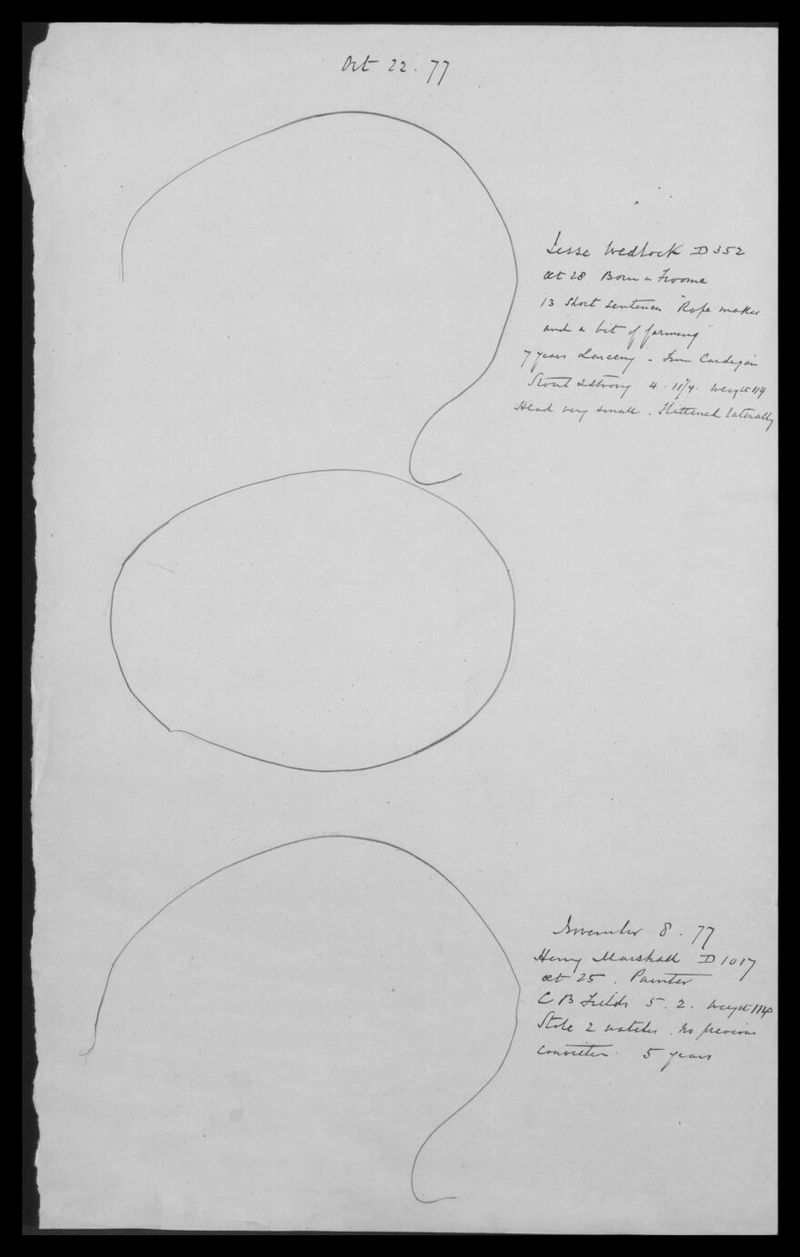 Oct 22. 77
Jesse Wedlock D352
æt 28 Born in Froome
13 Short sentences "Rope maker
and a bit of farming"
7 years Larceny - from Cardigan
Stout & strong 4. 11¼. Weight 114
Head very small. Flattened laterally
November 8. 77
Henry Marshall D1017
æt 25. Painter
C B Fields 5. 2. Weight 114
Stole 2 watches. No previous
conviction. 5 years